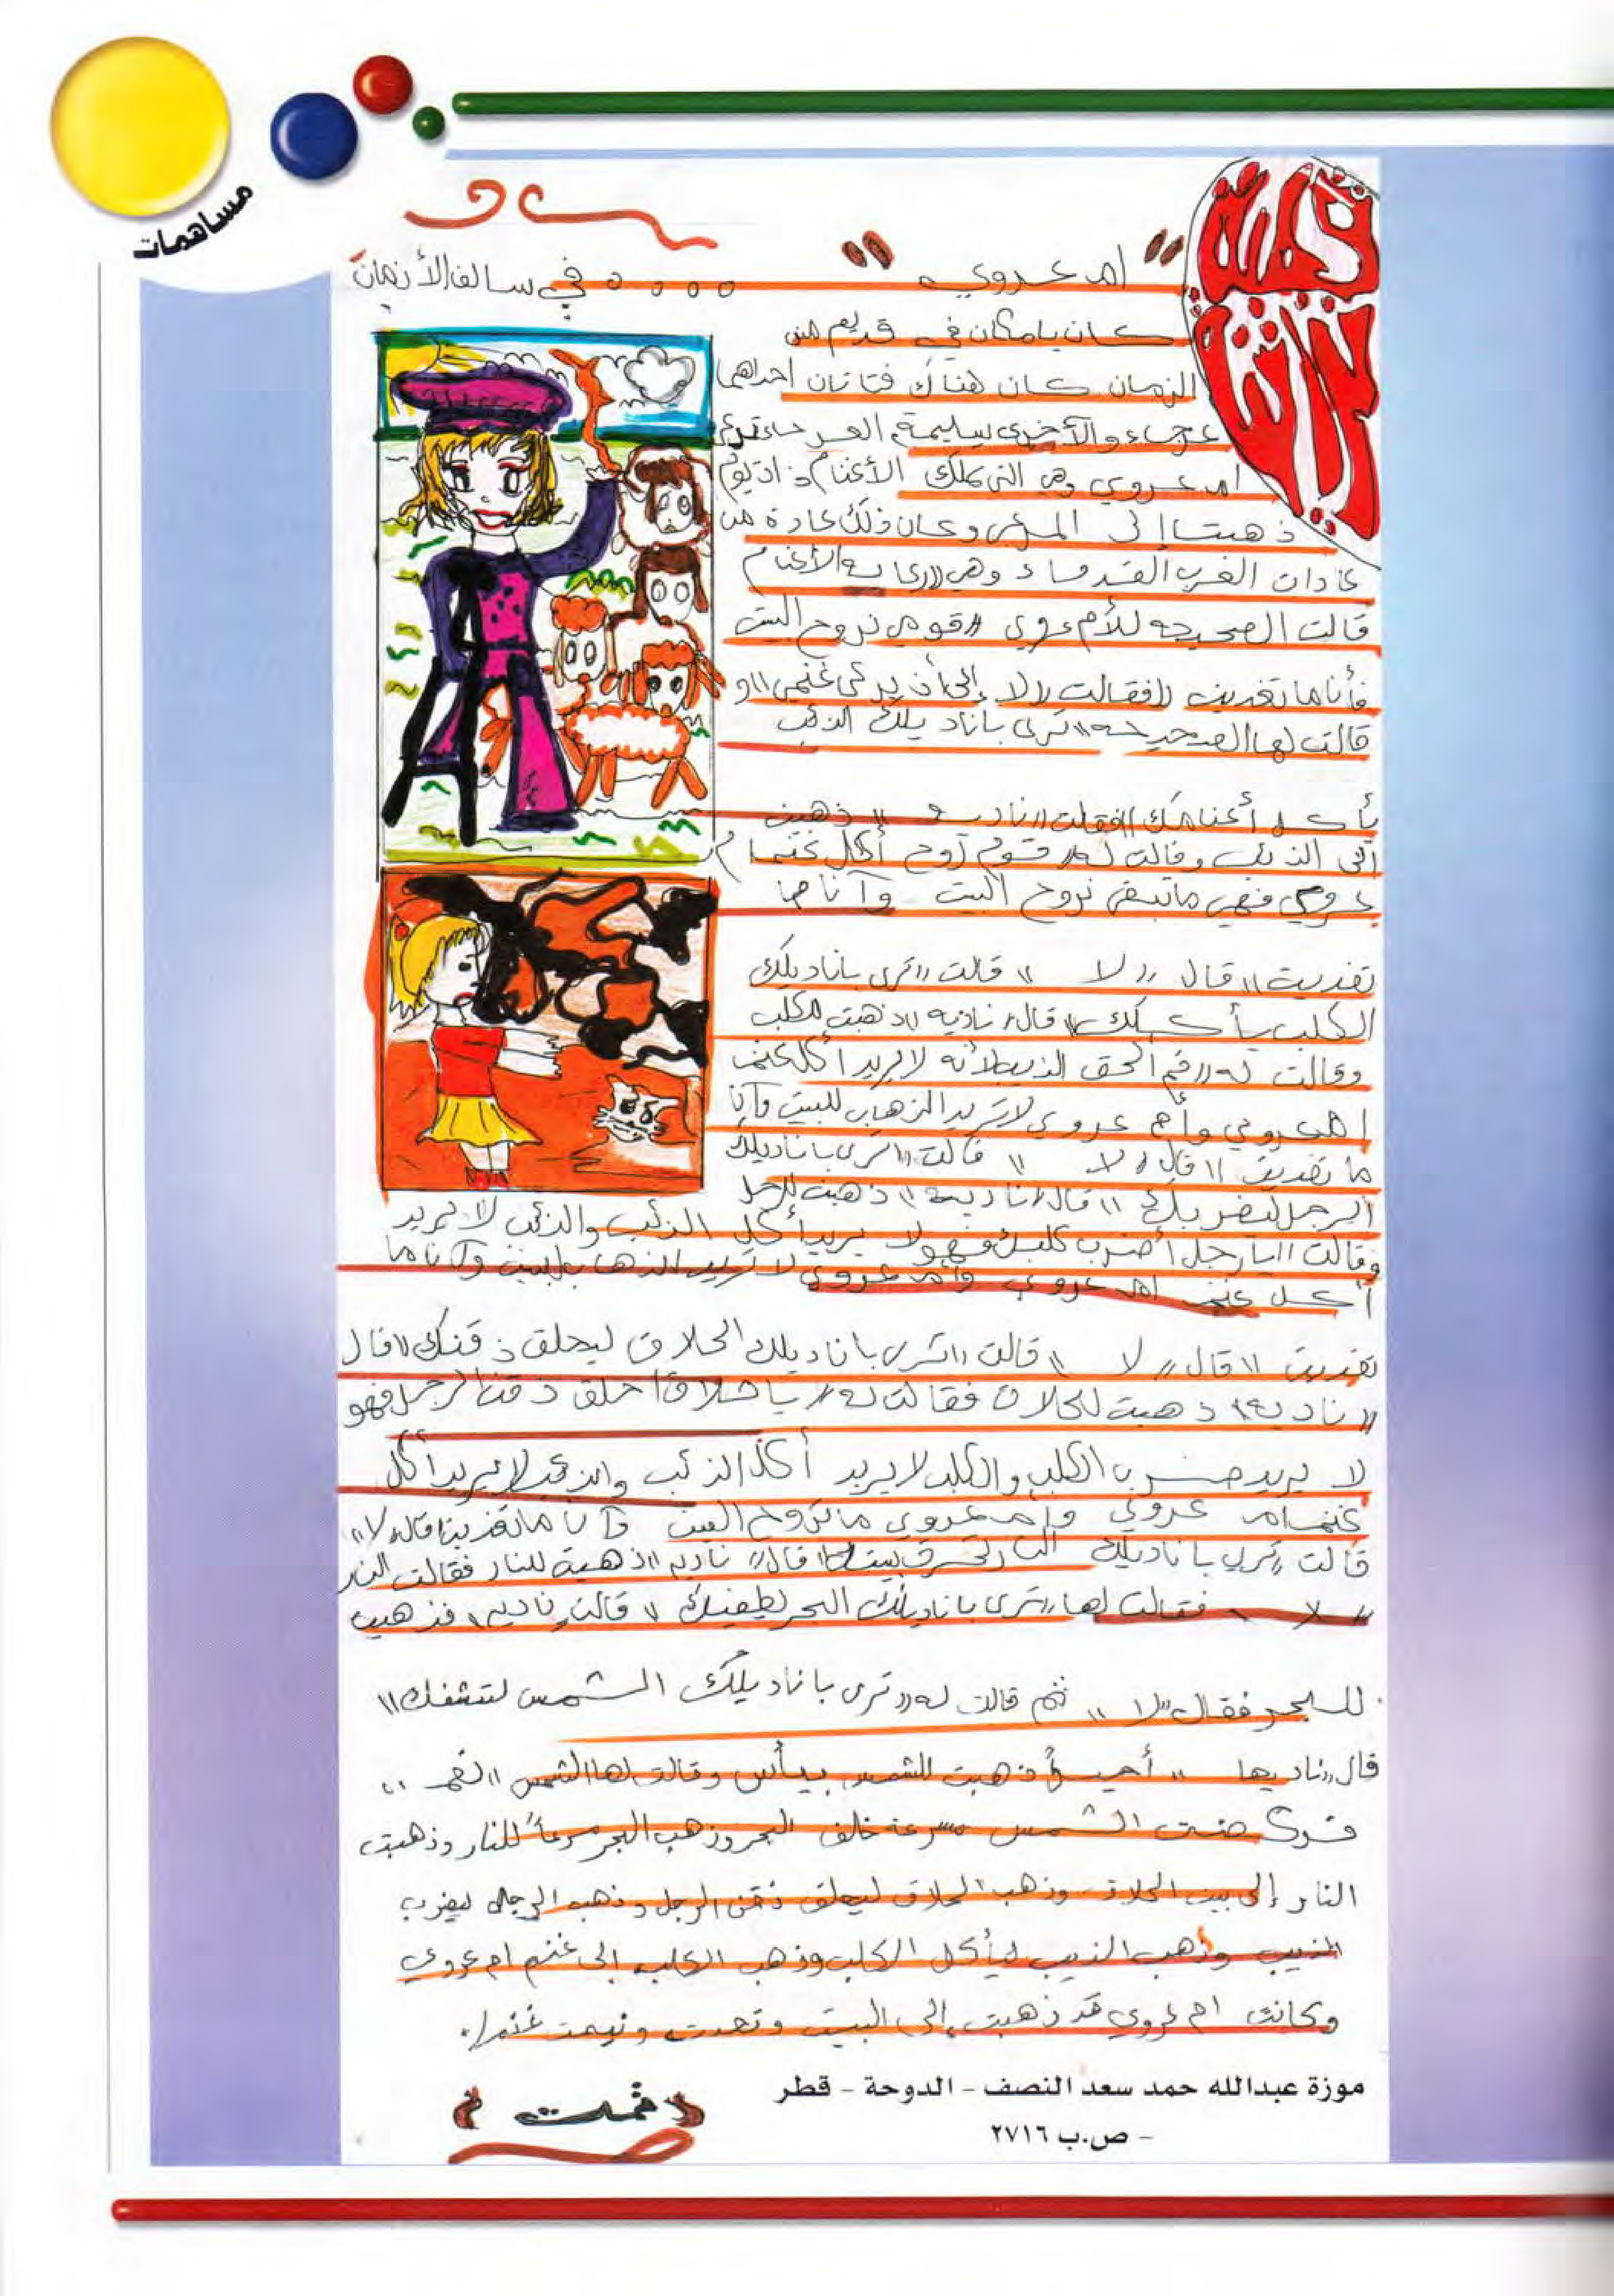 مساهمات
قصة
" ام عروي " ٥٥٥٥ في سالف الأزمان
كان يا مكان في قديم من
الزمان كان هناك فتاتان احداهما
عرجاء والأخرى سليمة العرجاء
ام عروي وهي التي تملك الأغنام ذات يوم
ذهبتا إلى المرعى وكان ذلك عادة من
عادات العرب القدماء وهي ((رعاية الأغنام
قالت الصحيحه للأم عروي ((قومي نروح البيت
فأنا ما تغديت ((فقالت ((لا إلى أن يرعى غنمي)) و
قالت لها الصحيحه ((ترى باناديلك الذئب
يأكل أغنامك)) فقالت ((ناديه)) ذهبت
إلى الذئب وقالت له ((قوم روح أكل غنم ام
عروي فهي ما تبغى نروح البيت وآنا ما
تغديت)) قال ((لا)) قالت ((ترى باناديلك
الكلب يأكلك)) قال ((ناديه)) ذهبت للكلب
وقالت له ((قم الحق الذيب لأنه لا يريد أكل غنم
ام عروي وأم عروي لا تريد الذهاب للبيت وآنا
ما تغديت)) قال ((لا)) قالت ((ترى باناديلك
الرجل ليضربك)) قال ((ناديه)) ذهبت للرجل
وقالت ((يا رجل أضرب كلبك فهو لا يريد أكل الذئب والذئب لا يريد
أكل غنم ام عروي وأم عروي لا تريد الذهاب للبيت وآنا ما
تغديت)) قال ((لا)) قالت ((ترى باناديلك الحلاق ليحلق ذقنك)) قال
((ناديه)) ذهبت للحلاق فقالت له ((يا حلاق احلق ذقن الرجل فهو
لا يريد ضرب الكلب والكلب لا يريد أكل الذئب والذئب لا يريد أكل
غنم ام عروي وأم عروي ما تروح البيت وآنا ما تغديت)) قال ((لا))
قالت ((ترى باناديلك النار تحرق بيتك)) قال ((ناديه)) ذهبت للنار فقالت النار
((لا)) فقالت لها ((ترى باناديلك البحر يطفيك)) قالت ((ناديه)) فذهبت
للبحر فقال ((لا)) ثم قالت له ((ترى باناديلك الشمس لتنشفك))
قال ((ناديها)) أخيراً ذهبت للشمس بيأس وقالت لها الشمس ((نعم))
فركضت الشمس مسرعة خلف البحر وذهب البحر مسرعاً للنار وذهبت
النار إلى بيت الحلاق وذهب الحلاق ليحلق ذقن الرجل وذهب الرجل ليضرب
الذيب وذهب الذيب ليأكل الكلب وذهب الكلب إلى غنم ام عروي
وكانت ام عروي قد ذهبت إلى البيت وتعدت ونيمت غنمها.
تمت
موزة عبدالله حمد سعد النصف - الدوحة - قطر
- ص.ب ٢٧١٦